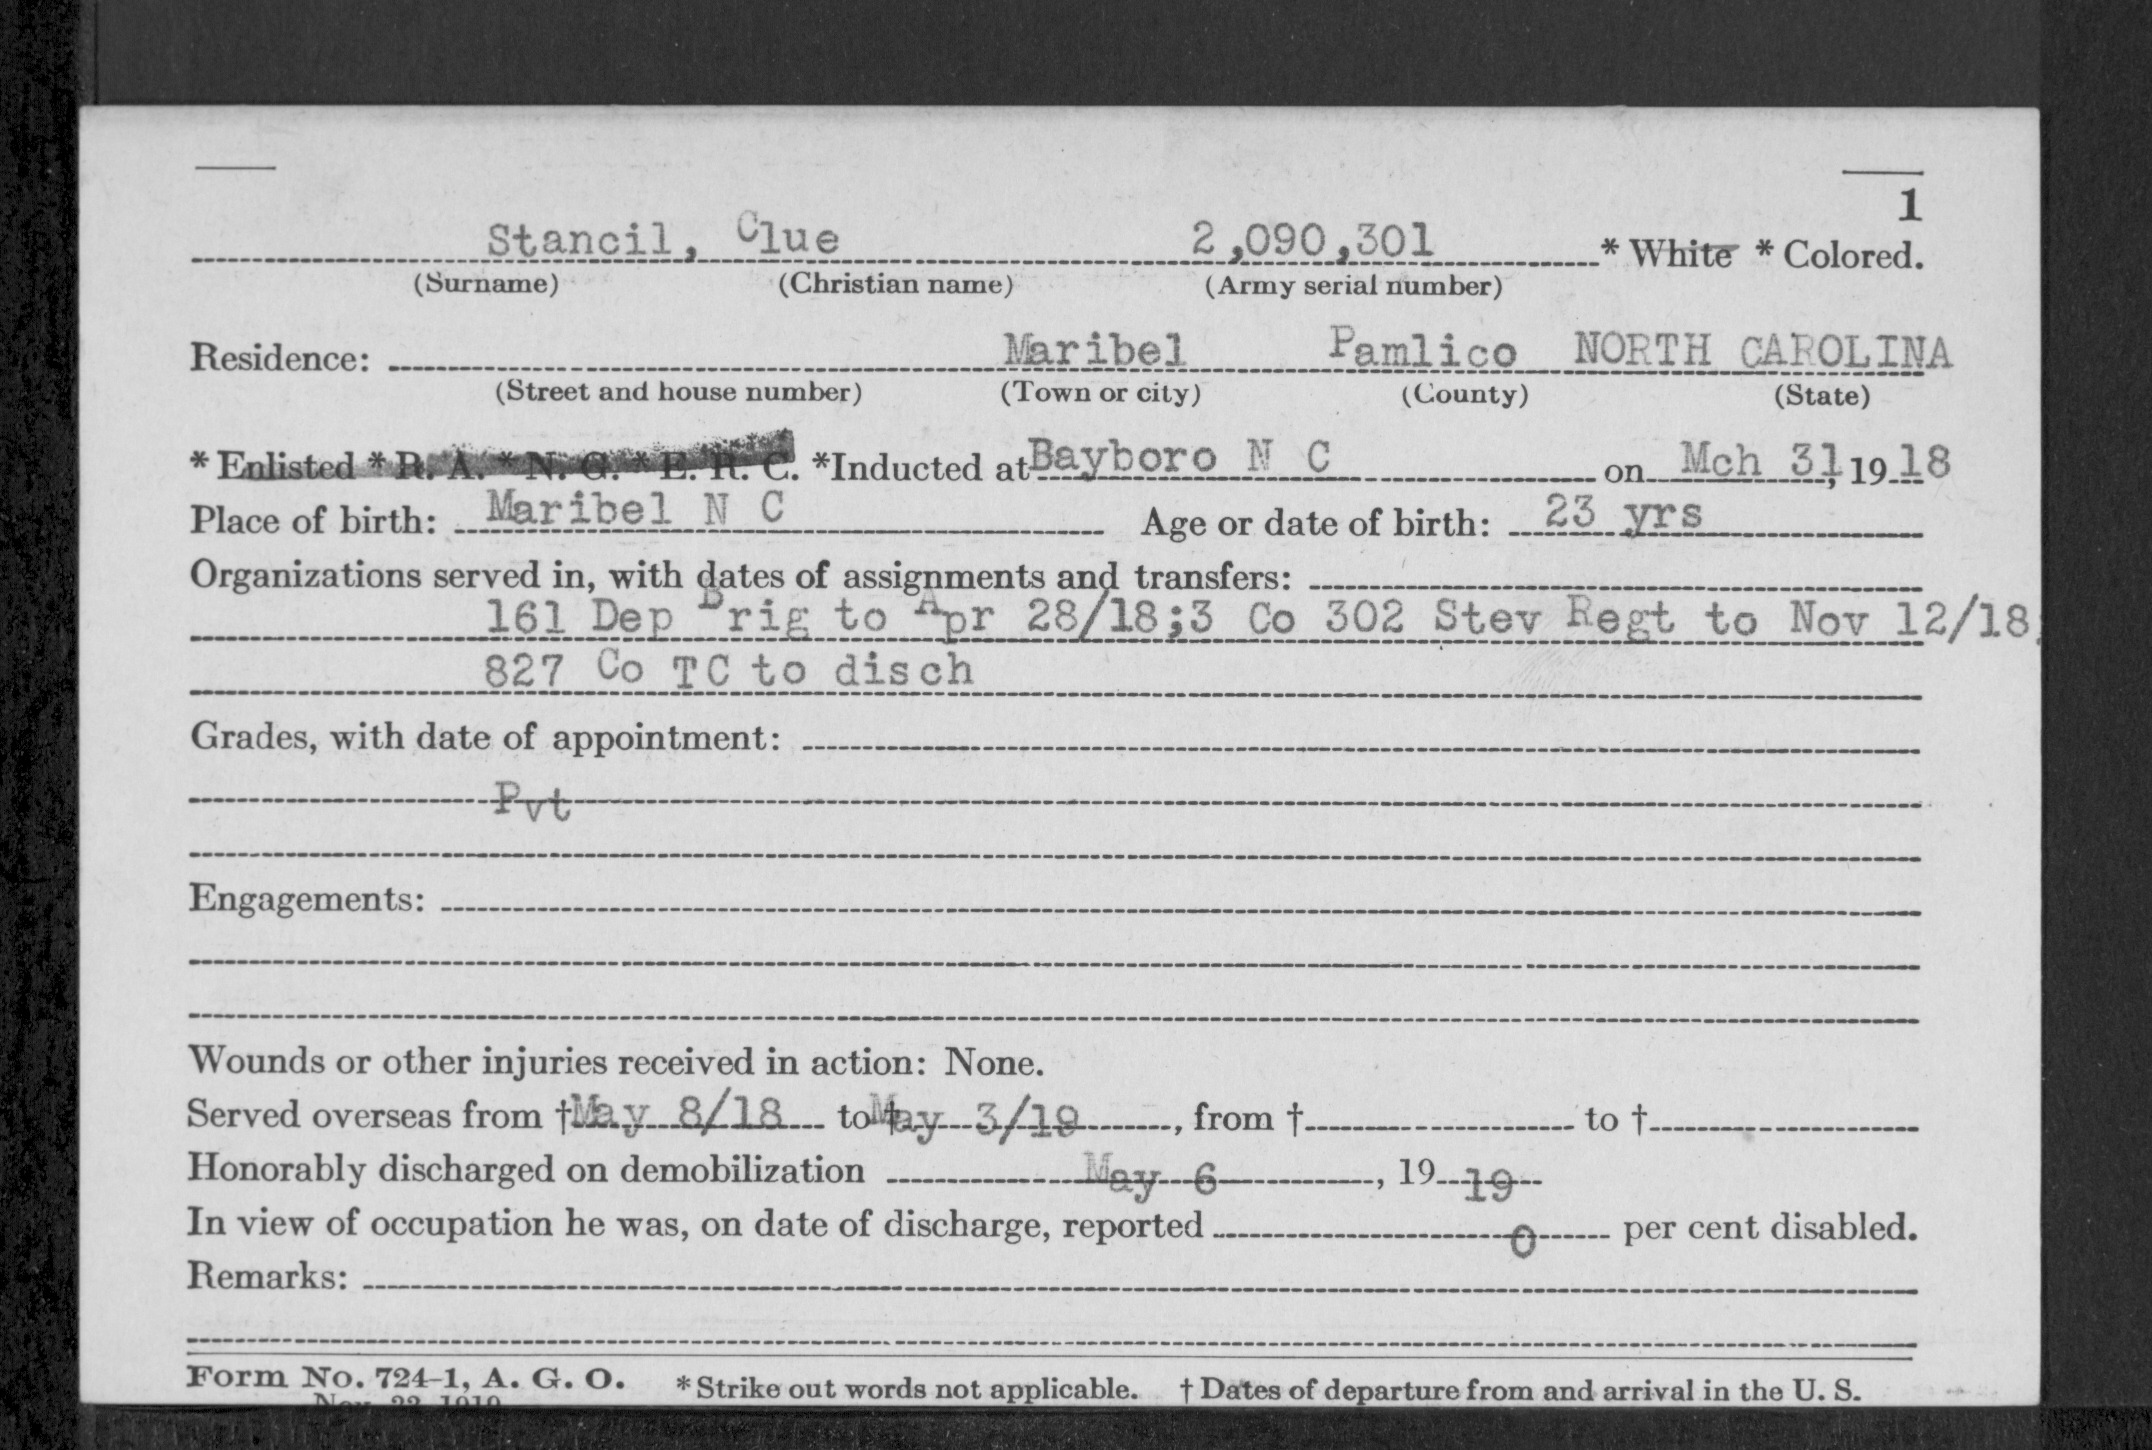 1
Stancil, Clue 2,090,301 * White * Colored.
(Surname) (Christian name) (Army serial number)
Residence: Maribel Pamlico NORTH CAROLINA
(Street and house number) (Town or city) (County) (State)
* Enlisted * R. A. * N. G. * E. R. C. *Inducted at Bayboro N C on Mch 31, 1918
Place of birth: Maribel N C Age or date of birth: 23 yrs
Organizations served in, with dates of assignments and transfers:
161 Dep Brig to Apr 28/18;3 Co 302 Stev Regt to Nov 12/18;
827 Co TC to disch
Grades, with date of appointment:
Pvt
Engagements:
Wounds or other injuries received in action: None.
Served overseas from † May 8/18 to † May 3/19, from † to †
Honorably discharged on demobilization May 6, 19 19
In view of occupation he was, on date of discharge, reported 0 per cent disabled.
Remarks:
Form No. 724-1, A. G. O. * Strike out words not applicable. † Dates of departure from and arrival in the U. S.
Nov. 22, 1919